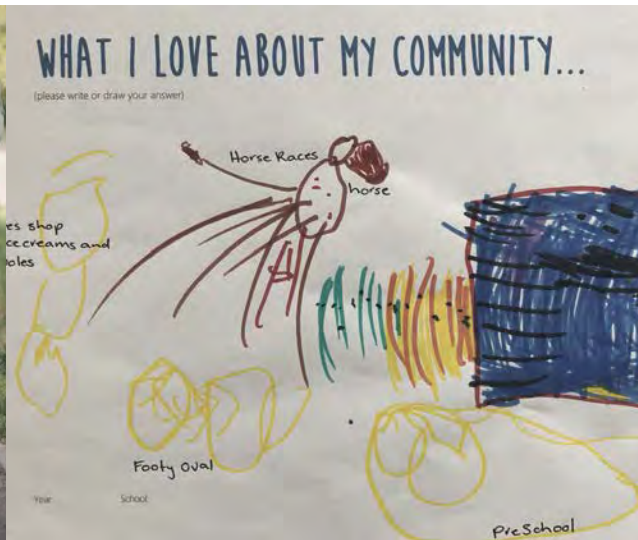 WHAT I LOVE ABOUT MY COMMUNITY...
(please write or draw your answer)
Horse Races
horse
es shop
cecreams and
oles
Footy Oval
Year School
PreSchool